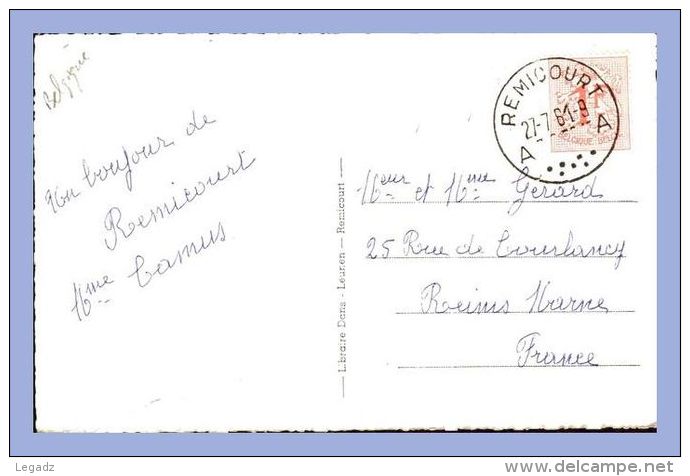 Belgique
Un boujour de
Remicourt
Mme Camus.
Libraire Dans - Leunen — Remicourt
REMICOURT
27-7 61-9
A A
1F
BELGIQUE BELGIE
Meur et Mme Gerard
25 Rue de Courlancy
Reims Marne
France
Legadz
delcampe.net